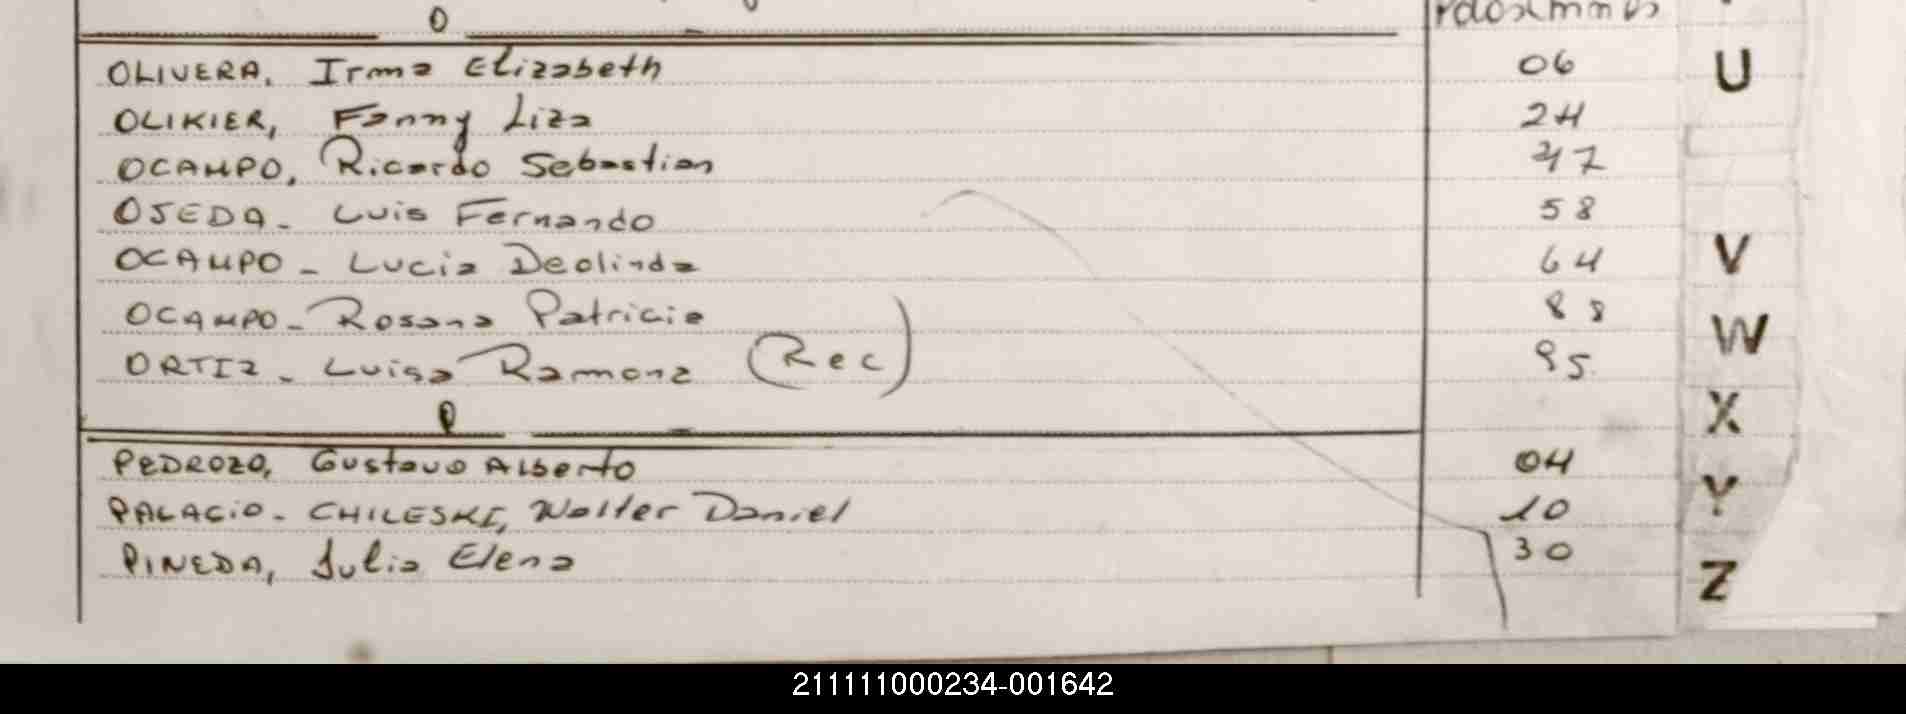 O
OLIVERA, Irma Elizabeth 06
OLIKIER, Fanny Liza 24
OCAMPO, Ricardo Sebastian 47
OJEDA - Luis Fernando 58
OCAMPO - Lucia Deolinda 64
OCAMPO - Rosana Patricia 88
ORTIZ - Luisa Ramona (Rec) 95
P
PEDROZO, Gustavo Alberto 04
PALACIO - CHILESKI, Walter Daniel 10
PINEDA, Julia Elena 30
U
V
W
X
Y
Z
211111000234-001642